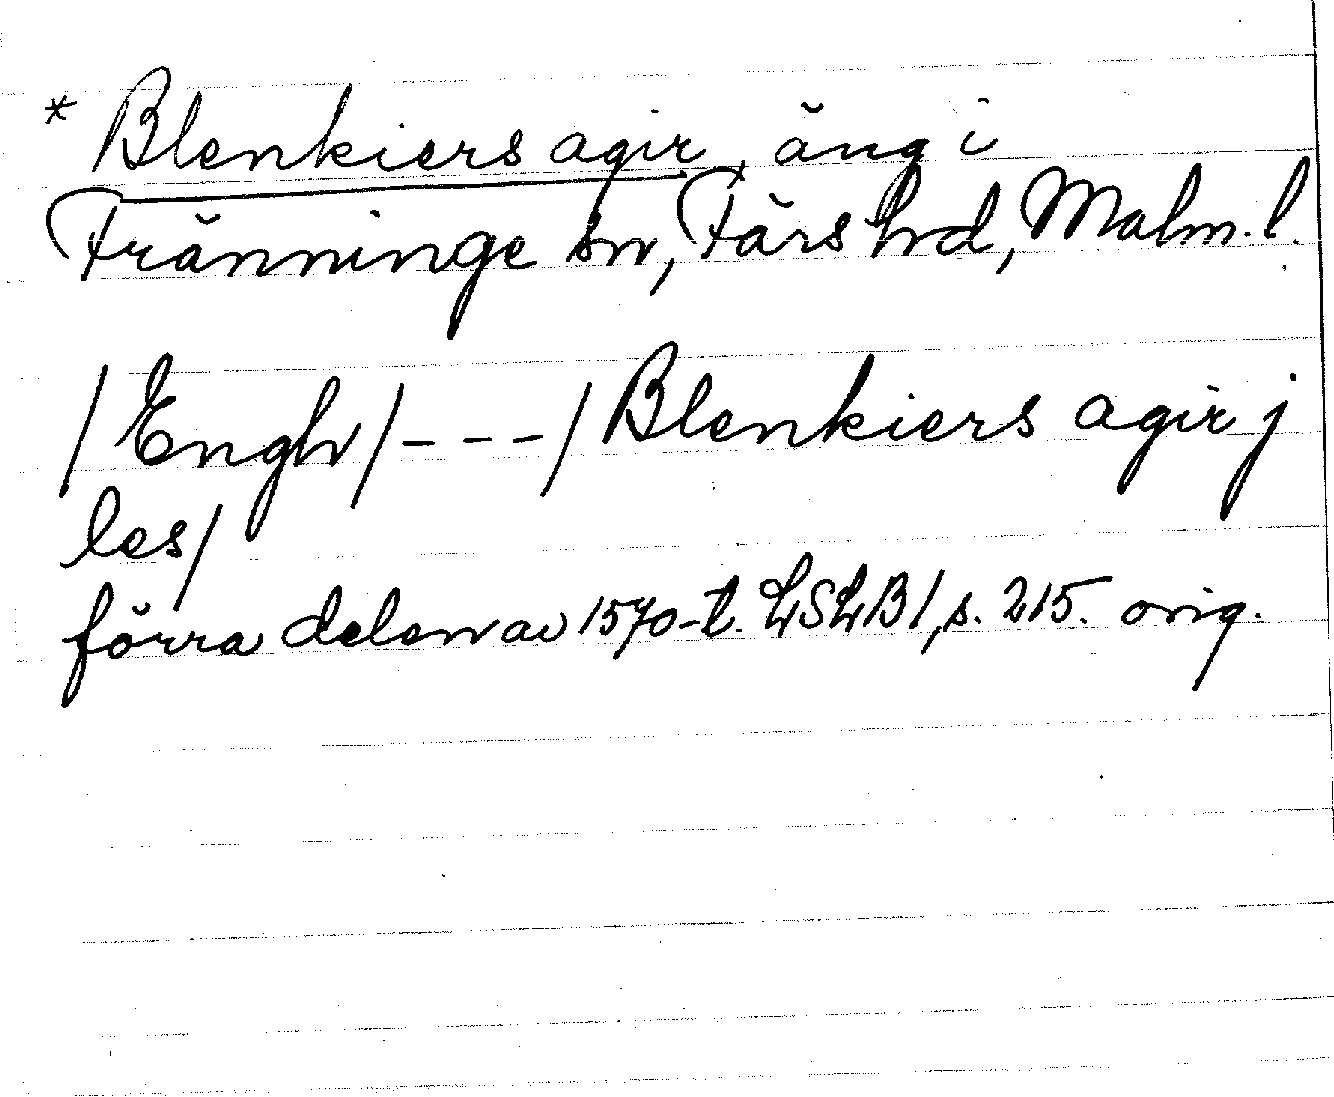 * Blenkiers agir, äng i
Fränninge sn, Färs hd, Malm. l.
/Engh/---/Blenkiers agir j
les/
förra delen av 1570-t. LSLB 1, s. 215. orig.